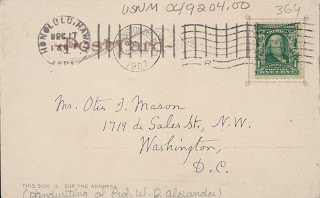 USNM 049204.00 364
HONOLULU, HAWAII
DEC 17
1907
Post Card
ONE CENT
Mr. Otis T. Mason
1719 de Sales St., N.W.
Washington,
D.C.
THIS SIDE IS FOR THE ADDRESS
(Handwriting of Prof. W. D. Alexander)